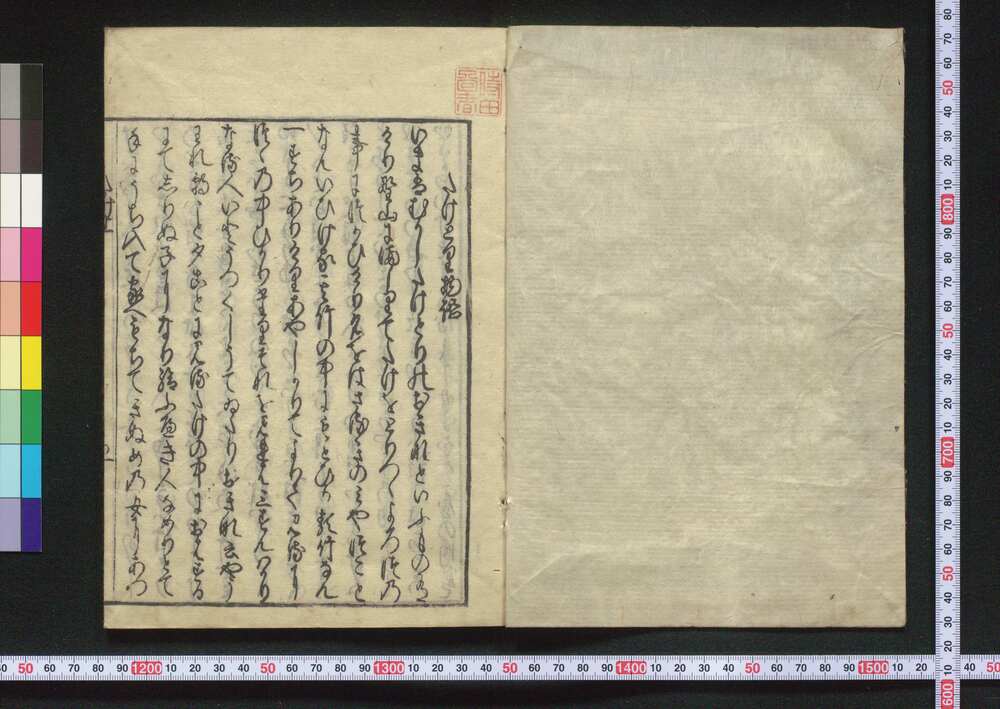 たけとり物語
いまはむかしたけとりのおきなといふもの有
けり野山にましりてたけをとりつゝよろつの
事につかひけり名をはさるきのみやつこと
なんいひけるその竹の中にもとひかる竹なん
一すちありけりあやしかりてよりてみるに
つゝの中ひかりたりそれをみれは三すんはかり
なる人いとうつくしうてゐたりおきな云やう
われ朝こと夕ことにみるたけの中におはする
にてしりぬ子になり給ふへき人なめりとて
手にうち入て家へもちてきぬめの女にあつ